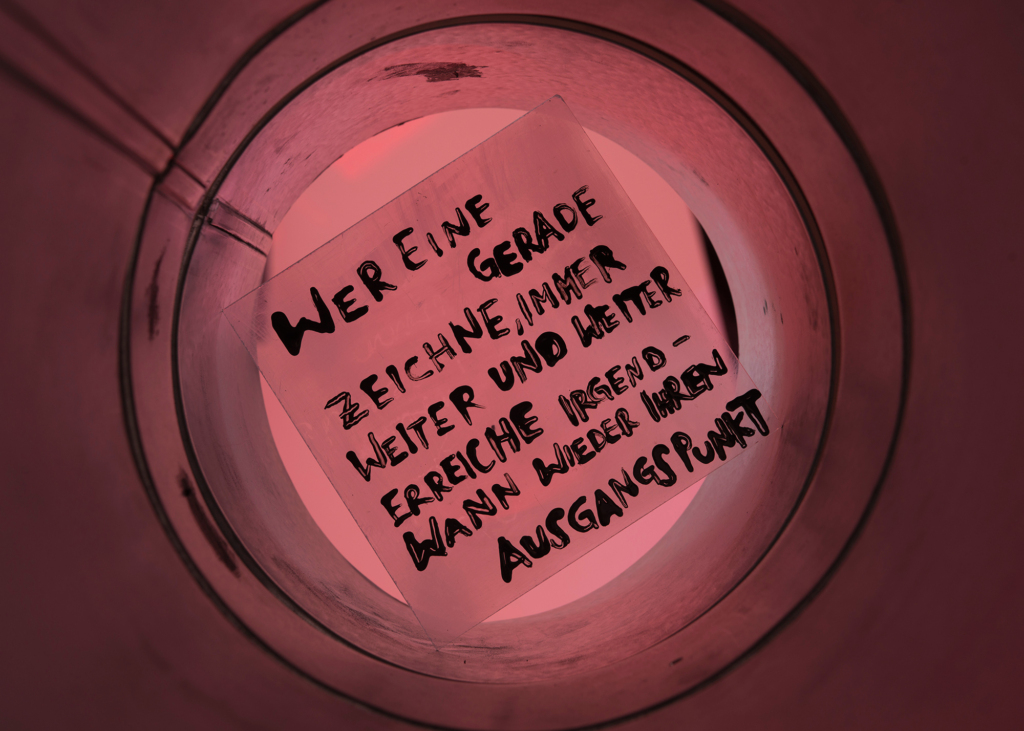 WER EINE
GERADE
ZEICHNE, IMMER
WEITER UND WEITER
ERREICHE IRGEND-
WANN WIEDER IHREN
AUSGANGSPUNKT